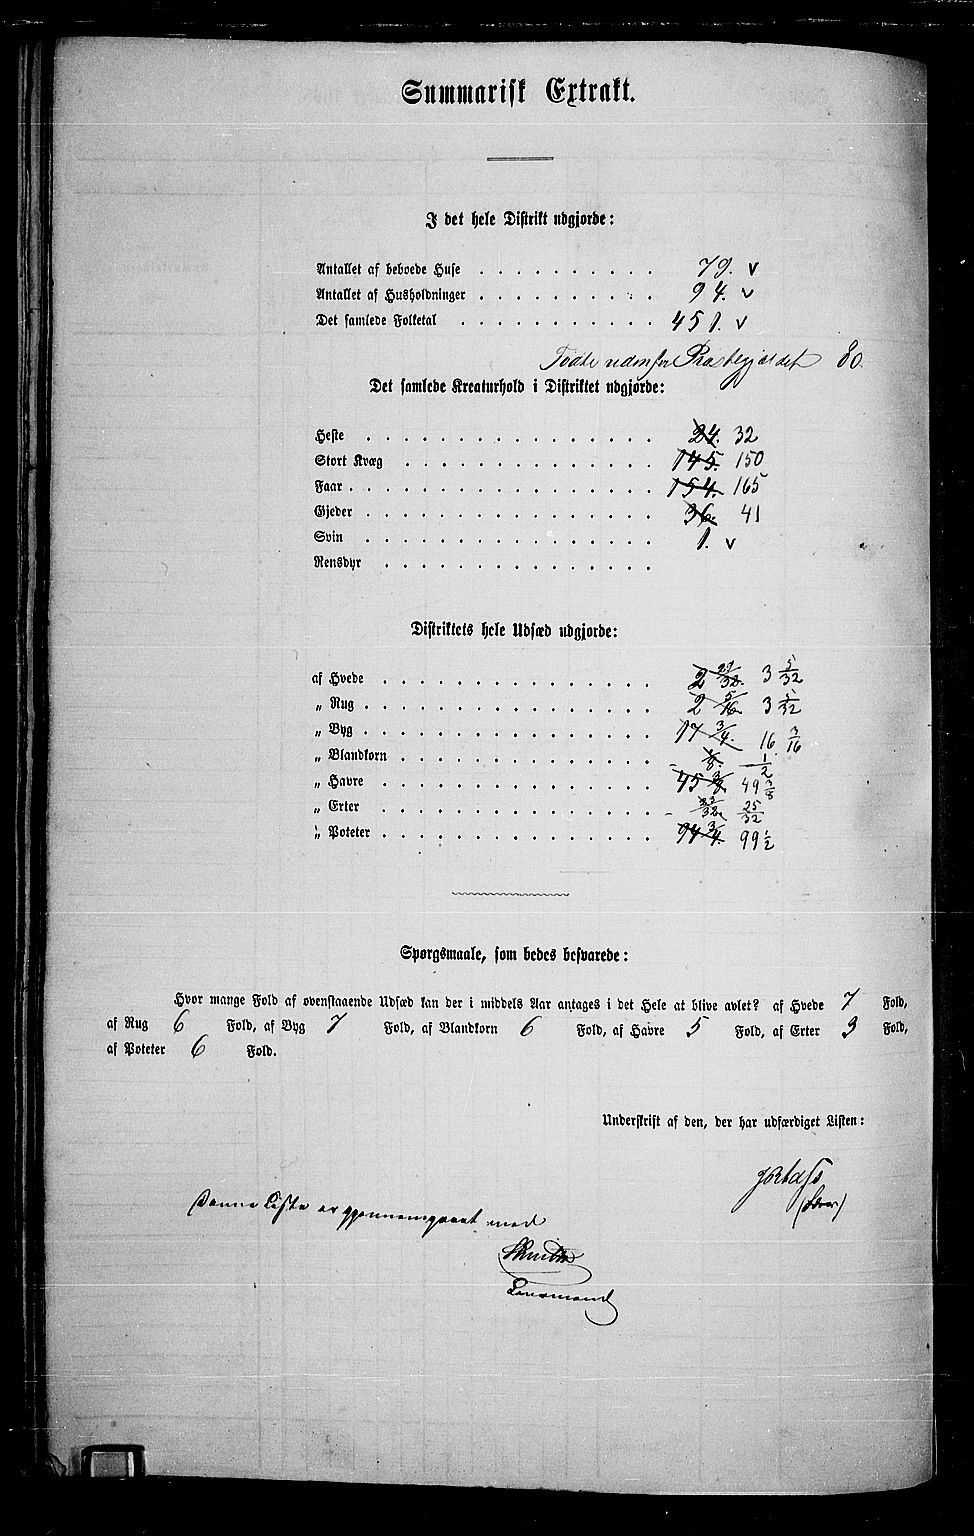 Summarisk Extrakt.
I det hele Distrikt udgjorde:
Antallet af beboede Huse . . . . . . . . . . 79. v
Antallet af Husholdninger . . . . . . . . . . 94. v
Det samlede Folketal . . . . . . . . . . . 451. v
Fødte udenfor Præstegjeldet 80.
Det samlede Kreaturhold i Distriktet udgjorde:
Heste . . . . . . . . . . . . . . . . 24. 32
Stort Kvæg . . . . . . . . . . . . . . 145. 150
Faar . . . . . . . . . . . . . . . . . 154. 165
Gjeder . . . . . . . . . . . . . . . . 36. 41
Svin . . . . . . . . . . . . . . . . 1. v
Rensdyr . . . . . . . . . . . . . . .
Distriktets hele Udsæd udgjorde:
af Hvede . . . . . . . . . . . . . . . 2 29/32. 3 5/32
„ Rug . . . . . . . . . . . . . . . . 2 5/16. 3 5/32
„ Byg . . . . . . . . . . . . . . . . 17 3/4. 16 3/16
„ Blandkorn . . . . . . . . . . . . . . 1/2
„ Havre . . . . . . . . . . . . . . . 45 49 3/8
„ Erter . . . . . . . . . . . . . . . 25/32
„ Poteter . . . . . . . . . . . . . . . 94 3/4. 99 1/2
Spørgsmaale, som bedes besvarede:
Hvor mange Fold af ovenstaaende Udsæd kan der i middels Aar antages i det Hele at blive avlet? af Hvede 7 Fold,
af Rug 6 Fold, af Byg 7 Fold, af Blandkorn 6 Fold, af Havre 5 Fold, af Erter 3 Fold,
af Poteter 6 Fold.
Underskrift af den, der har udfærdiget Listen:
Denne Liste er gjennemgaaet med
Lensmand